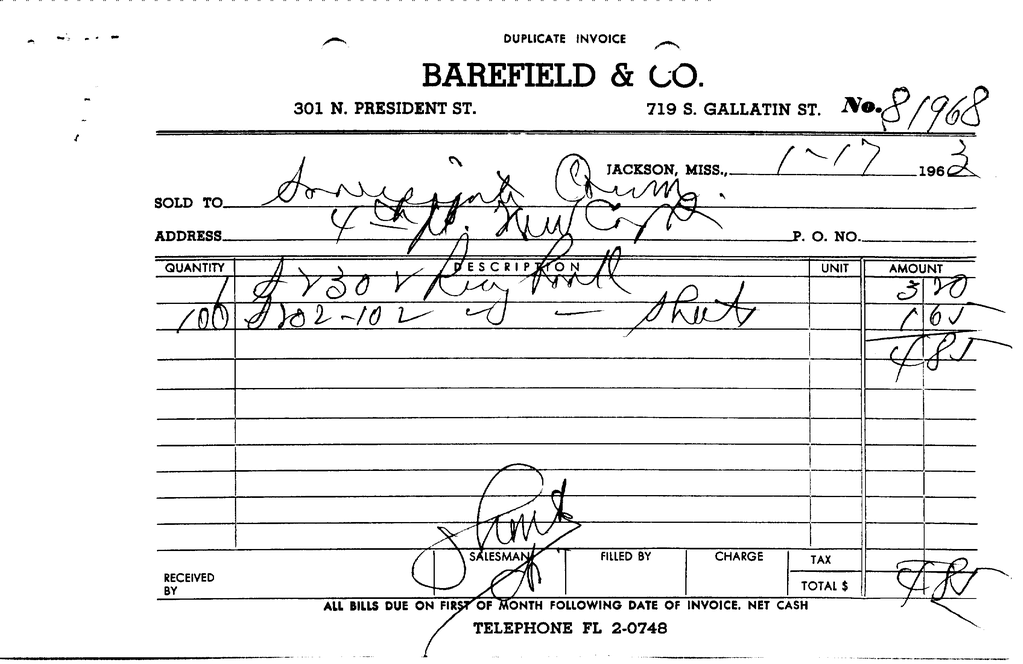 DUPLICATE INVOICE
BAREFIELD & CO.
301 N. PRESIDENT ST. 719 S. GALLATIN ST. No. 81968
JACKSON, MISS., 1-17 1963
SOLD TO
ADDRESS 4th New Capitol P. O. NO.
QUANTITY DESCRIPTION UNIT AMOUNT
1 3 20
100 202-102 Sheets 1 65
4 85
SALESMAN FILLED BY CHARGE TAX
RECEIVED BY TOTAL $ 4 85
ALL BILLS DUE ON FIRST OF MONTH FOLLOWING DATE OF INVOICE. NET CASH
TELEPHONE FL 2-0748